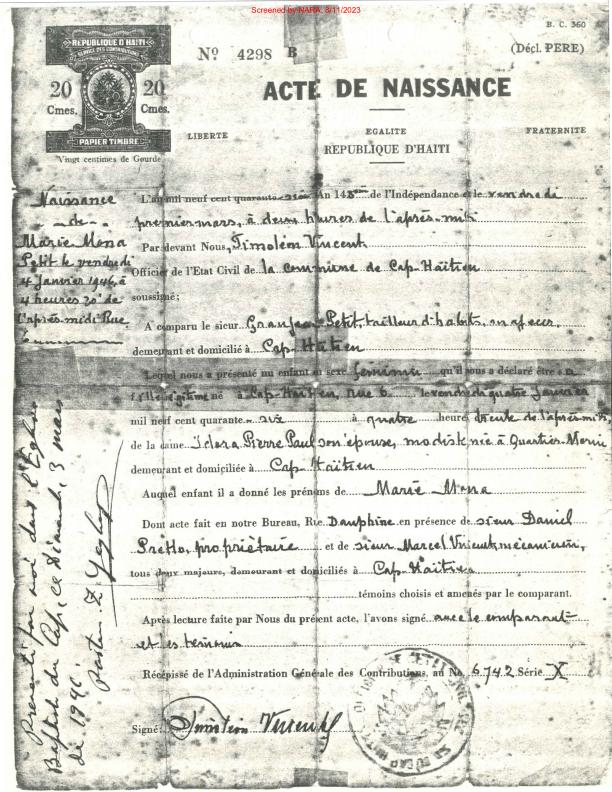 Screened by NARA, 8/11/2023
B. C. 360
(Décl. PERE)
REPUBLIQUE D'HAITI
SERVICE DES CONTRIBUTIONS
20 Cmes.
20 Cmes.
PAPIER TIMBRE
Vingt centimes de Gourde
Nº 4298 B
ACTE DE NAISSANCE
LIBERTE EGALITE FRATERNITE
REPUBLIQUE D'HAITI
Naissance
de
Marie Mona
Petit le vendredi
4 Janvier 1946, à
4 heures 30' de
l'après-midi Rue
L'an mil neuf cent quarante-six An 143 de l'Indépendance et le vendredi
premier mars, à deux heures de l'après-midi
Par devant Nous, Timoléon Vincent
Officier de l'Etat Civil de la commune de Cap-Haïtien
soussigné;
A comparu le sieur Petit, tailleur d'habits,
demeurant et domicilié à Cap-Haïtien
Lequel nous a présenté un enfant du sexe feminin qu'il nous a déclaré être
fille légitime né à Cap-Haïtien, rue 6 le vendredi quatre Janvier
mil neuf cent quarante-six à quatre heures trente de l'après-midi
de la dame Pierre Paul son épouse, modiste née à Quartier-Morin
demeurant et domiciliée à Cap-Haïtien
Auquel enfant il a donné les prénoms de Marie Mona
Dont acte fait en notre Bureau, Rue Dauphine en présence de sieur Daniel
propriétaire et de sieur Marcel Vincent, mécanicien,
tous deux majeurs, demeurant et domiciliés à Cap-Haïtien
témoins choisis et amenés par le comparant.
Après lecture faite par Nous du présent acte, l'avons signé avec le comparant
et les témoins
Récépissé de l'Administration Générale des Contributions, au No 6.742 Série X
Signé: Timoléon Vincent
Presenté par moi dans l'Eglise
Baptiste du Cap, ce Dimanche 3 mars
de 194